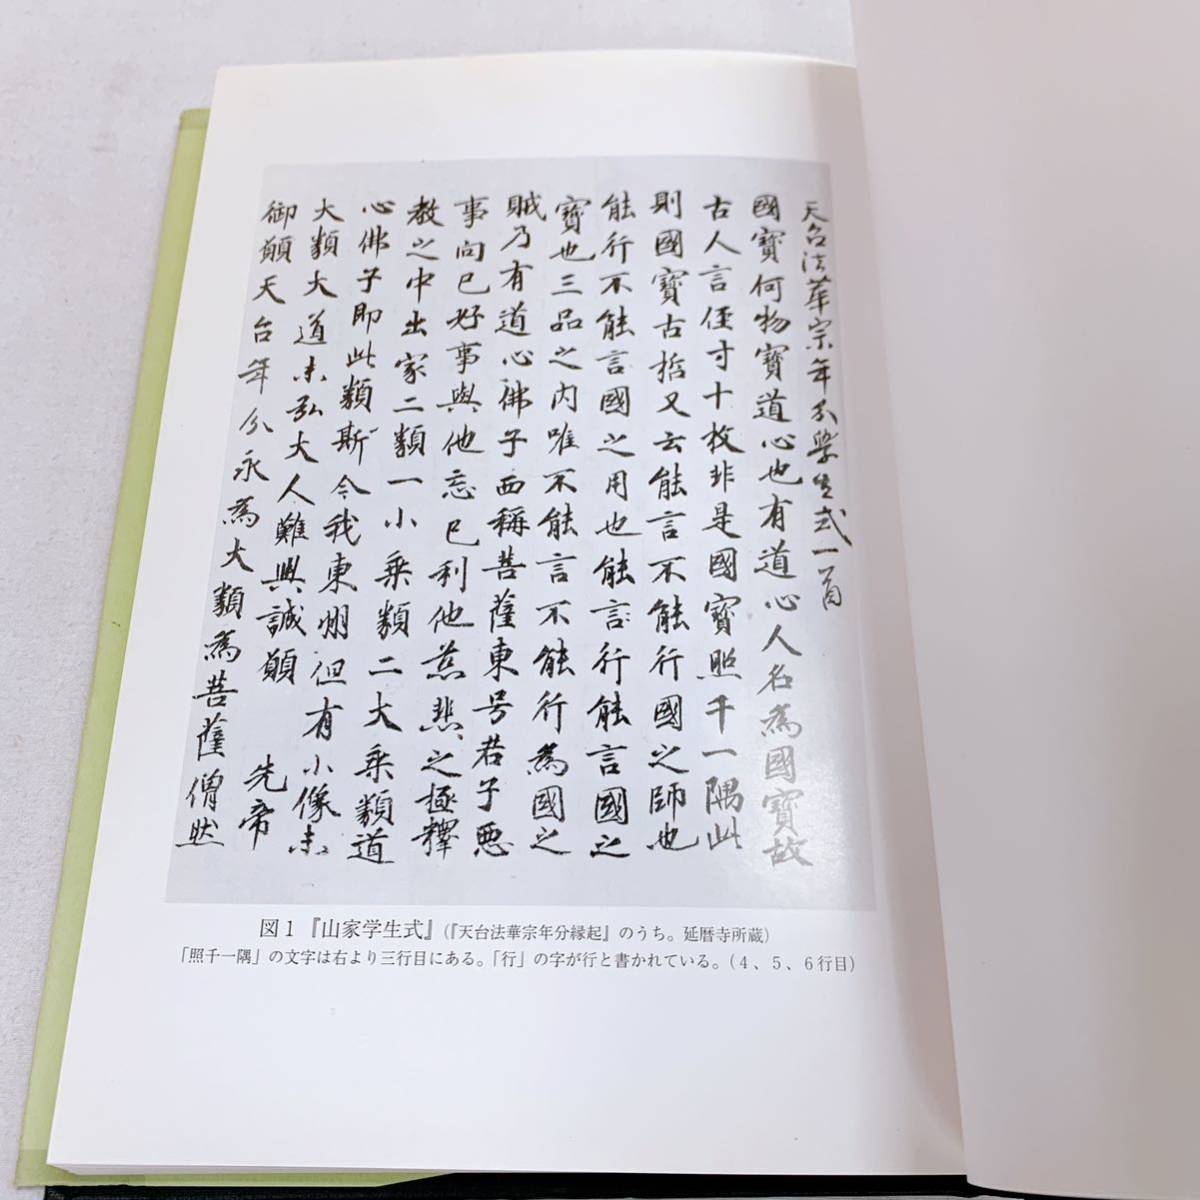 天台法華宗年分學生式一首
國寶何物寶道心也有道心人名為國寶故
古人言徑寸十枚非是國寶照千一隅此
則國寶古哲又云能言不能行國之師也
能行不能言國之用也能言行能言國之
寶也三品之内唯不能言不能行為國之
賊乃有道心佛子西稱菩薩東号君子悪
事向己好事與他忘己利他慈悲之極釋
教之中出家二類一小乘類二大乘類道
心佛子即此類斯今我東州但有小像未
大類大道未弘大人難興誠願 先帝
御願天台年分永為大類為菩薩僧然
図1『山家学生式』(『天台法華宗年分縁起』のうち。延暦寺所蔵)
「照千一隅」の文字は右より三行目にある。「行」の字が行と書かれている。(4、5、6行目)